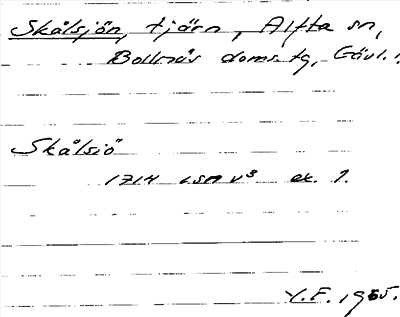 Skålsjön, tjärn, Alfta sn,
Bollnäs doms. tg, Gävl. l.
Skålsjö
1714 LSA V³ ak. 1.
Y.F. 1955.